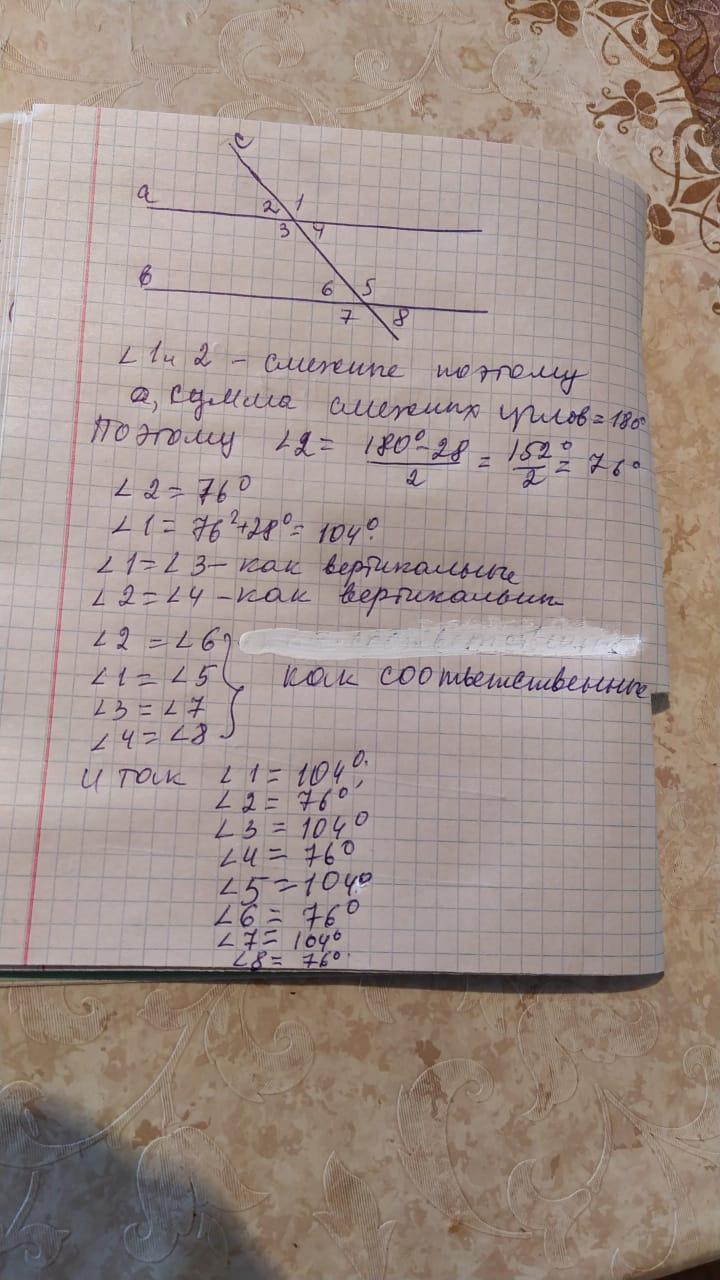 c
a
2 1
3 4
в
6 5
7 8
∠1 и 2 – смежные поэтому
а, сумма смежных углов = 180°
Поэтому ∠2 = (180° - 28)/2 = 152°/2 = 76°
∠2 = 76°
∠1 = 76° + 28° = 104°.
∠1 = ∠3 – как вертикальные
∠2 = ∠4 – как вертикальн
∠2 = ∠6
∠1 = ∠5 как соответственные
∠3 = ∠7
∠4 = ∠8
Итак ∠1 = 104°;
∠2 = 76°
∠3 = 104°
∠4 = 76°
∠5 = 104°
∠6 = 76°
∠7 = 104°
∠8 = 76°.